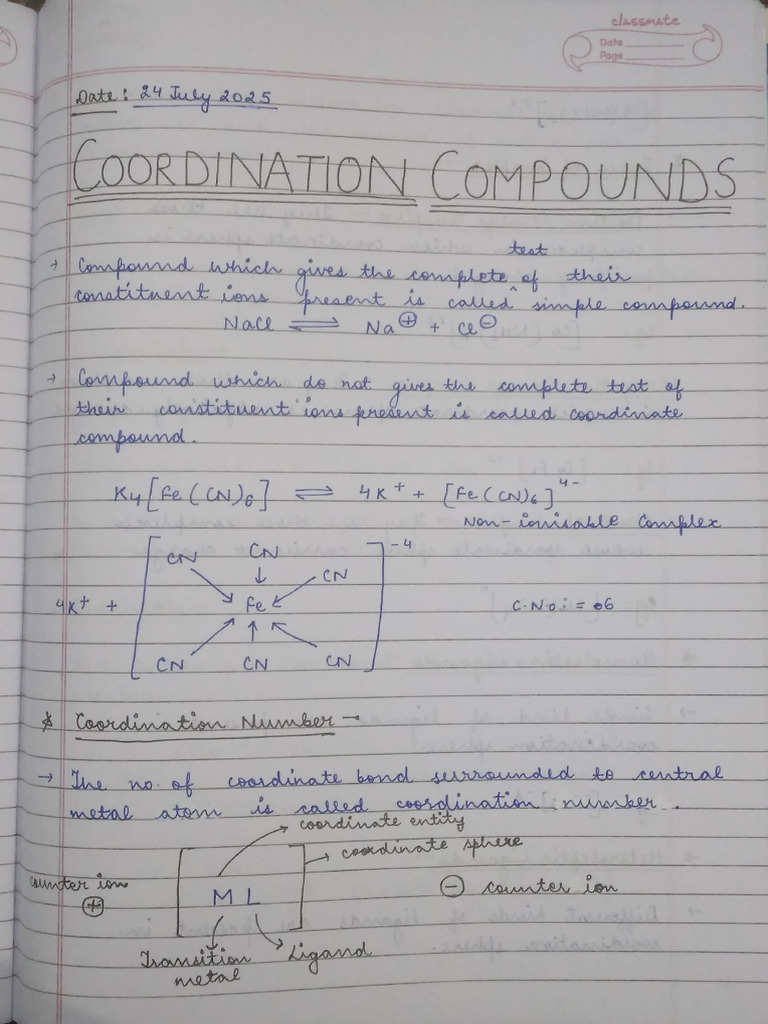 classmate
Date
Page
Date: 24 July 2025
COORDINATION COMPOUNDS
test
→ Compound which gives the complete ^ of their
constituent ions present is called simple compound.
NaCl ⇌ Na⊕ + Cl⊖
→ Compound which do not gives the complete test of
their constituent ions present is called coordinate
compound.
K4[Fe(CN)6] ⇌ 4K+ + [Fe(CN)6]4-
Non-ionisable Complex
CN CN CN -4
4K+ + Fe C.No: = 06
CN CN CN
* Coordination Number -
→ The no. of coordinate bond surrounded to central
metal atom is called coordination number.
coordinate entity
coordinate sphere
counter ion
⊕
M L
⊖ counter ion
Transition
metal
Ligand